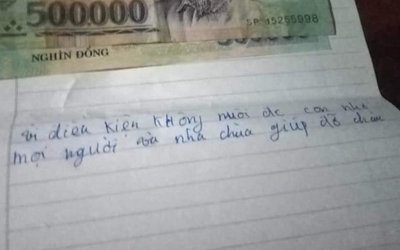 500.000
SP 15255998
NGHÌN ĐỒNG
vì điều kiện không nuôi đc con nhờ
mọi người và nhà chùa giúp đỡ cháu